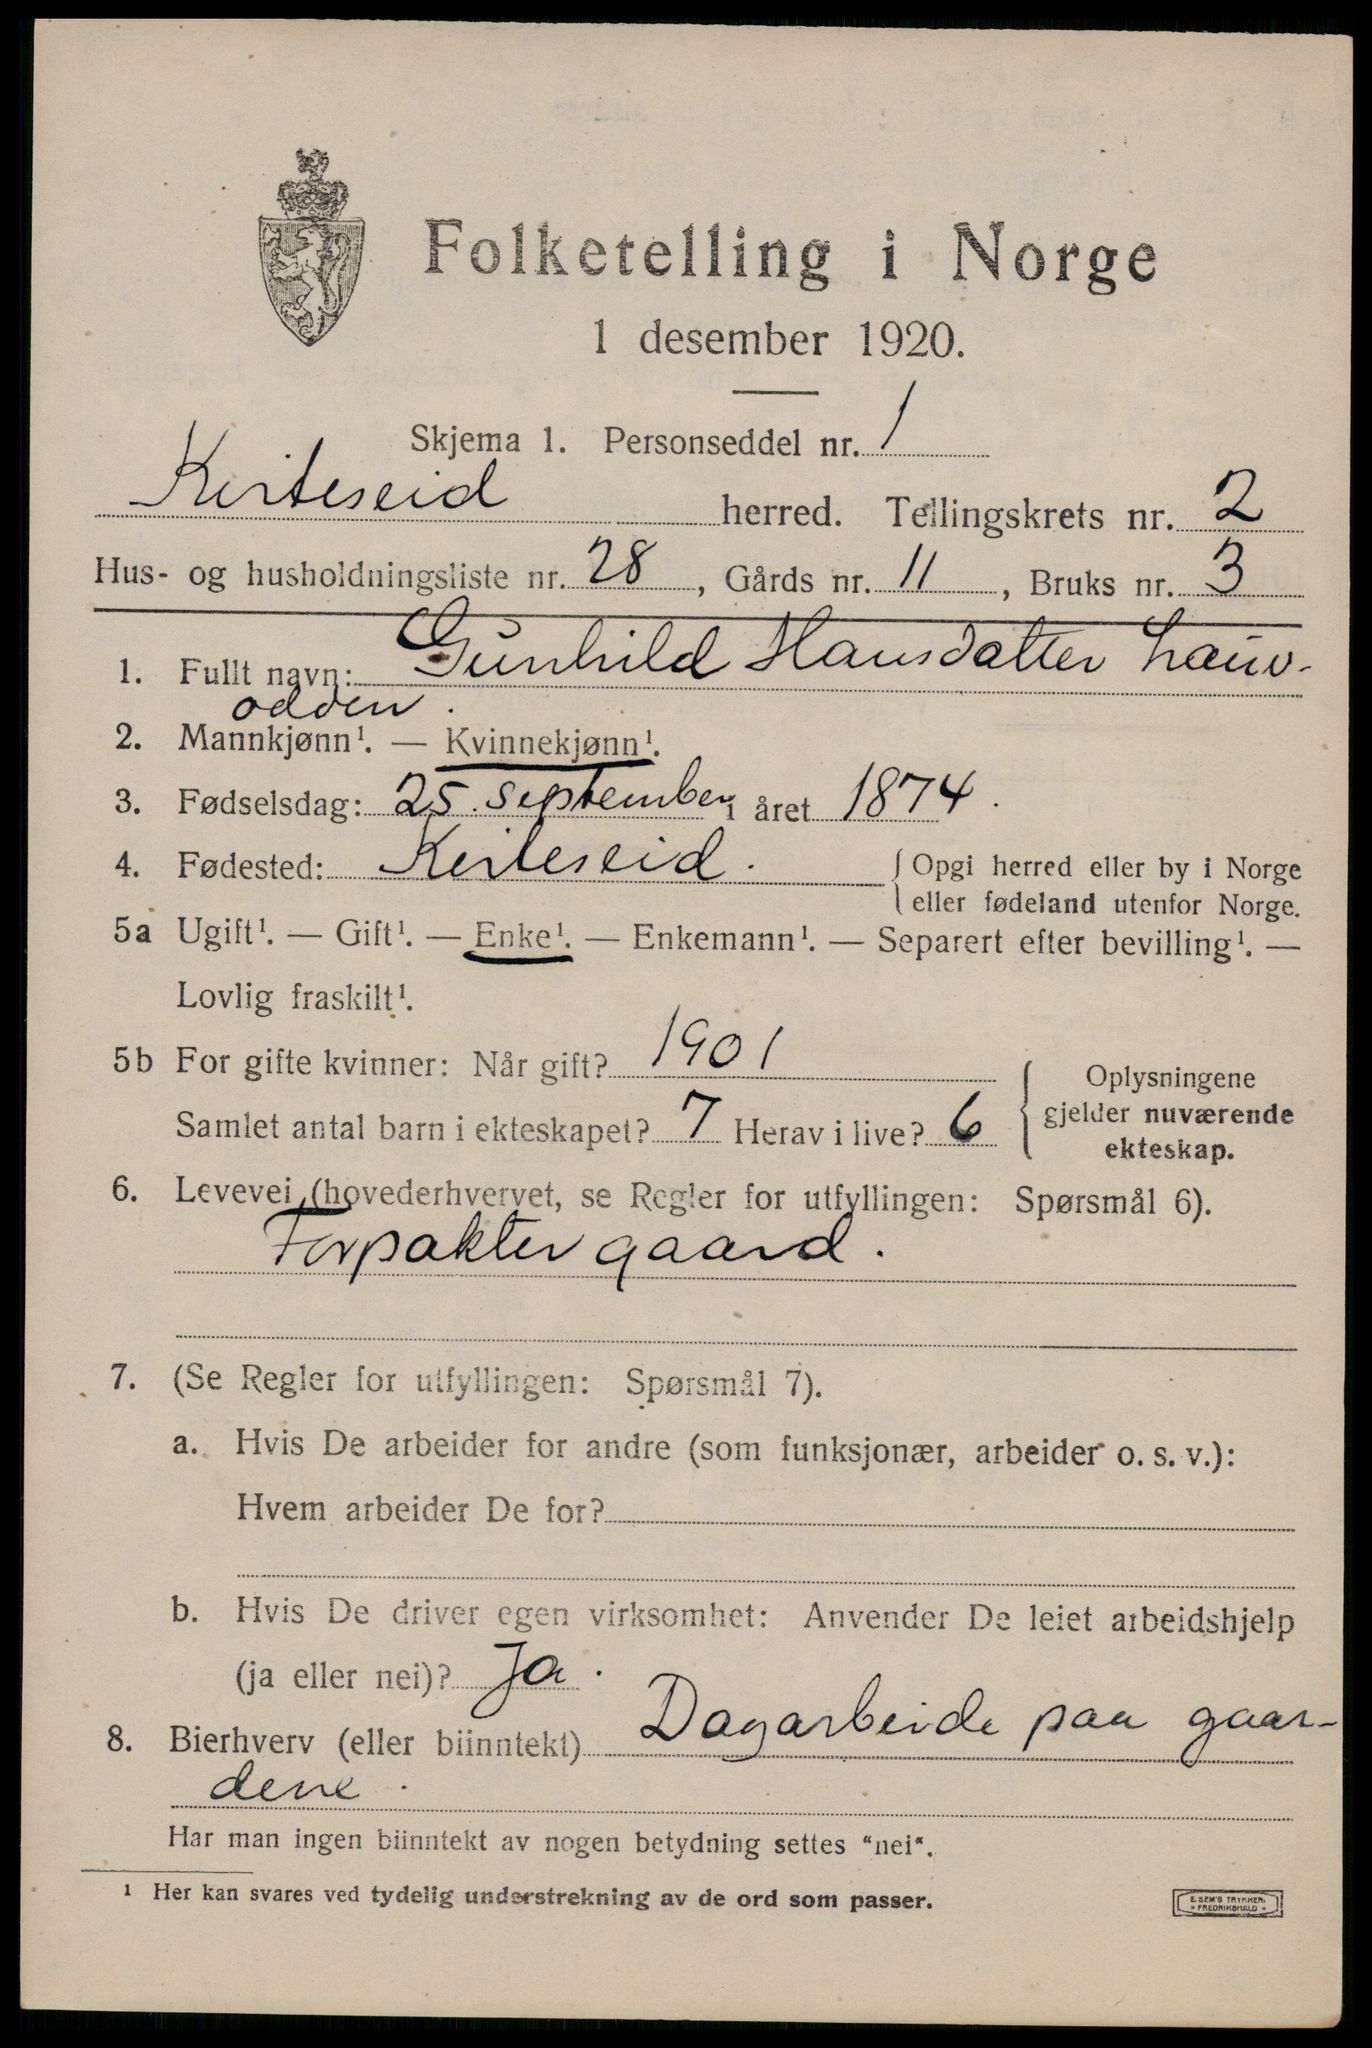 Folketelling i Norge
1 desember 1920.
Skjema 1. Personseddel nr. 1
Kviteseid herred. Tellingskrets nr. 2
Hus- og husholdningsliste nr. 28, Gårds nr. 11, Bruks nr. 3
1. Fullt navn: Gunhild Hansdatter Lauv-
odden.
2. Mannkjønn¹. — Kvinnekjønn¹.
3. Fødselsdag: 25. september i året 1874.
4. Fødested: Kviteseid. { Opgi herred eller by i Norge
{ eller fødeland utenfor Norge.
5a Ugift¹. — Gift¹. — Enke¹. — Enkemann¹. — Separert efter bevilling¹. —
Lovlig fraskilt¹.
5b For gifte kvinner: Når gift? 1901
Samlet antal barn i ekteskapet? 7 Herav i live? 6
{ Oplysningene
gjelder nuværende
ekteskap.
6. Levevei (hovederhvervet, se Regler for utfyllingen: Spørsmål 6).
Forpakter gaard.
7. (Se Regler for utfyllingen: Spørsmål 7).
a. Hvis De arbeider for andre (som funksjonær, arbeider o. s. v.):
Hvem arbeider De for?
b. Hvis De driver egen virksomhet: Anvender De leiet arbeidshjelp
(ja eller nei)? Ja.
8. Bierhverv (eller biinntekt) Dagarbeide paa gaar-
dene.
Har man ingen biinntekt av nogen betydning settes “nei“.
¹ Her kan svares ved tydelig understrekning av de ord som passer.
E. SEM'S TRYKKERI
* FREDRIKSHALD *